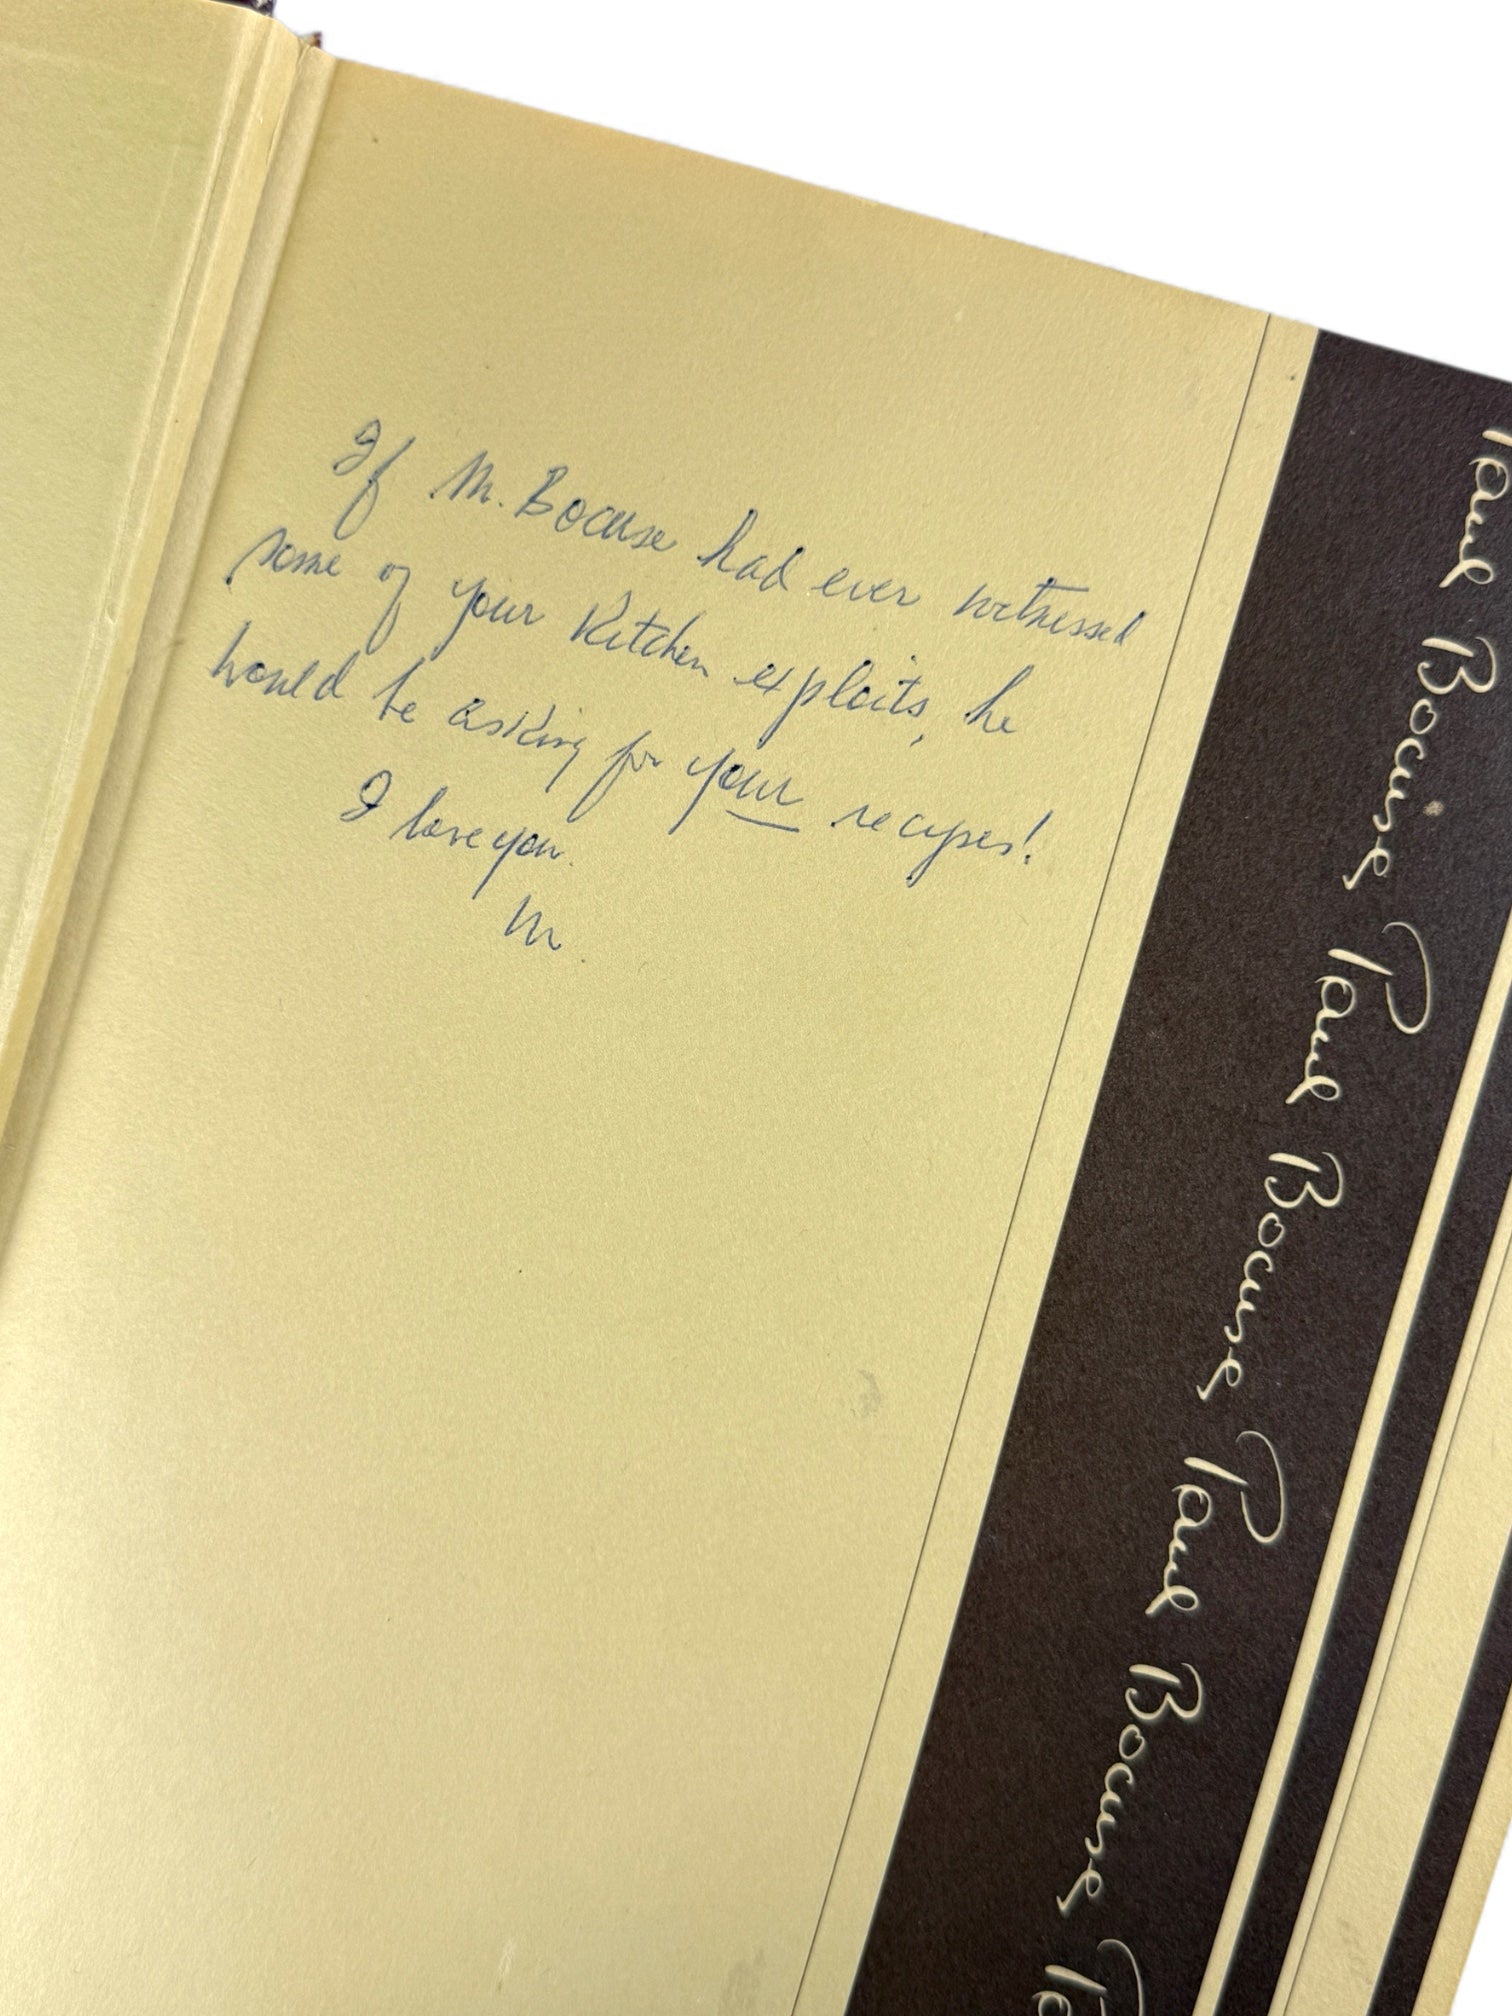 If M. Bocuse had ever witnessed
some of your kitchen exploits, he
would be asking for your recipes!
I love you.
M.
Paul Bocuse Paul Bocuse Paul Bocuse